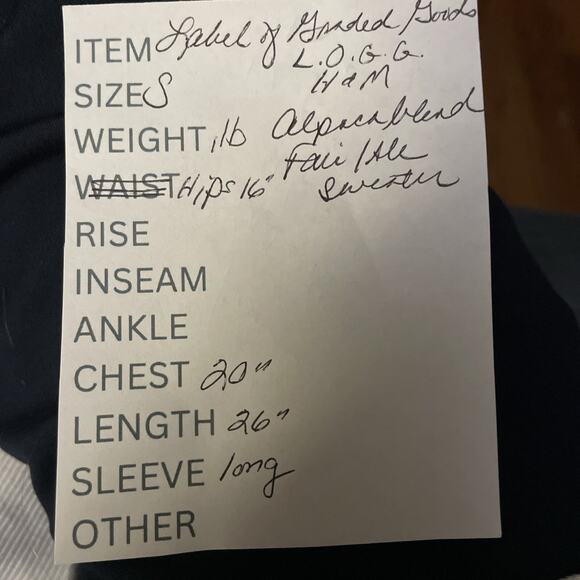 ITEM Label of Graded Goods
L.O.G.G.
H & M
SIZE S
WEIGHT 1lb Alpaca blend
Fair Isle
sweater
WAIST Hips 16"
RISE
INSEAM
ANKLE
CHEST 20"
LENGTH 26"
SLEEVE long
OTHER